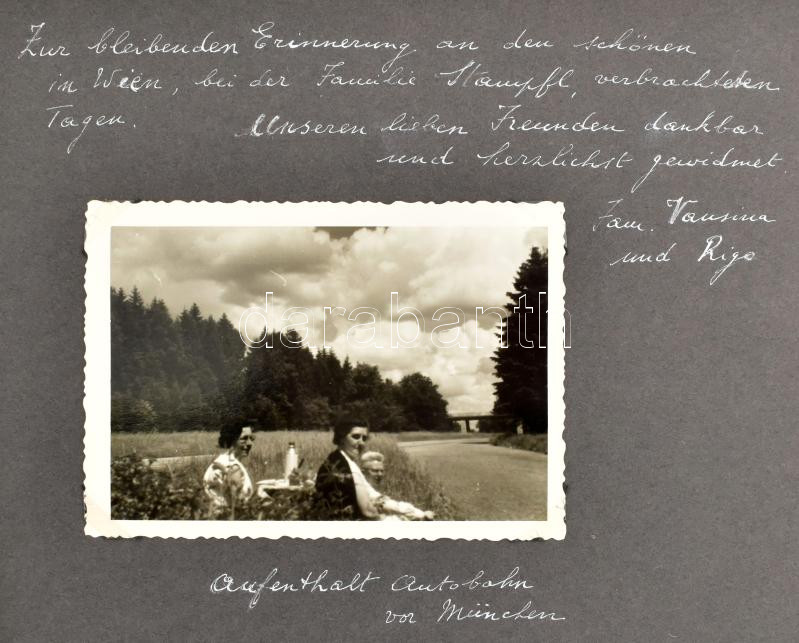 Zur bleibenden Erinnerung an den schönen
in Wien, bei der Familie Stampfl, verbrachten
Tagen. Unseren lieben Freunden dankbar
und herzlichst gewidmet.
Fam. Vansina
und Rigo
darabanth
Aufenthalt Autobahn
vor München